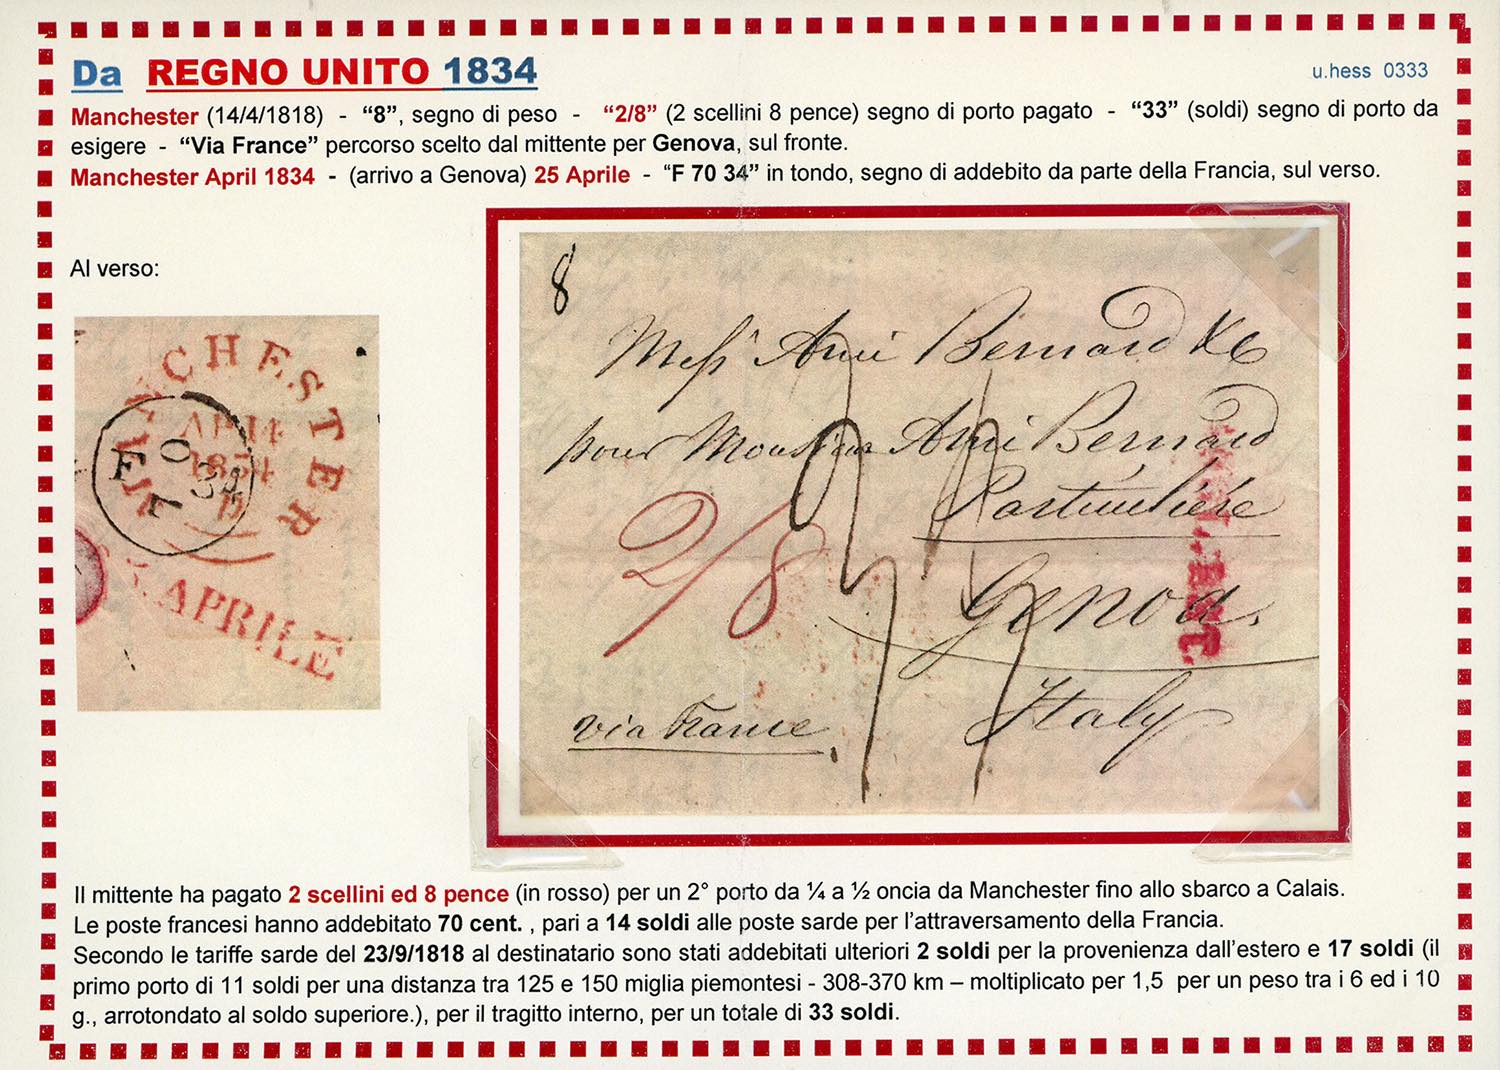 Da REGNO UNITO 1834
u.hess 0333
Manchester (14/4/1818) - “8”, segno di peso - “2/8” (2 scellini 8 pence) segno di porto pagato - “33” (soldi) segno di porto da
esigere - “Via France” percorso scelto dal mittente per Genova, sul fronte.
Manchester April 1834 - (arrivo a Genova) 25 Aprile - “F 70 34” in tondo, segno di addebito da parte della Francia, sul verso.
Al verso:
MANCHESTER
AP 14
1834
F 70 34
APRILE
8
Messrs Ami Bernard & Co
pour Monsieur Ami Bernard
Particulière
2/8
33
Genoa.
Italy
via France.
Il mittente ha pagato 2 scellini ed 8 pence (in rosso) per un 2° porto da ¼ a ½ oncia da Manchester fino allo sbarco a Calais.
Le poste francesi hanno addebitato 70 cent. , pari a 14 soldi alle poste sarde per l’attraversamento della Francia.
Secondo le tariffe sarde del 23/9/1818 al destinatario sono stati addebitati ulteriori 2 soldi per la provenienza dall’estero e 17 soldi (il
primo porto di 11 soldi per una distanza tra 125 e 150 miglia piemontesi - 308-370 km – moltiplicato per 1,5 per un peso tra i 6 ed i 10
g., arrotondato al soldo superiore.), per il tragitto interno, per un totale di 33 soldi.